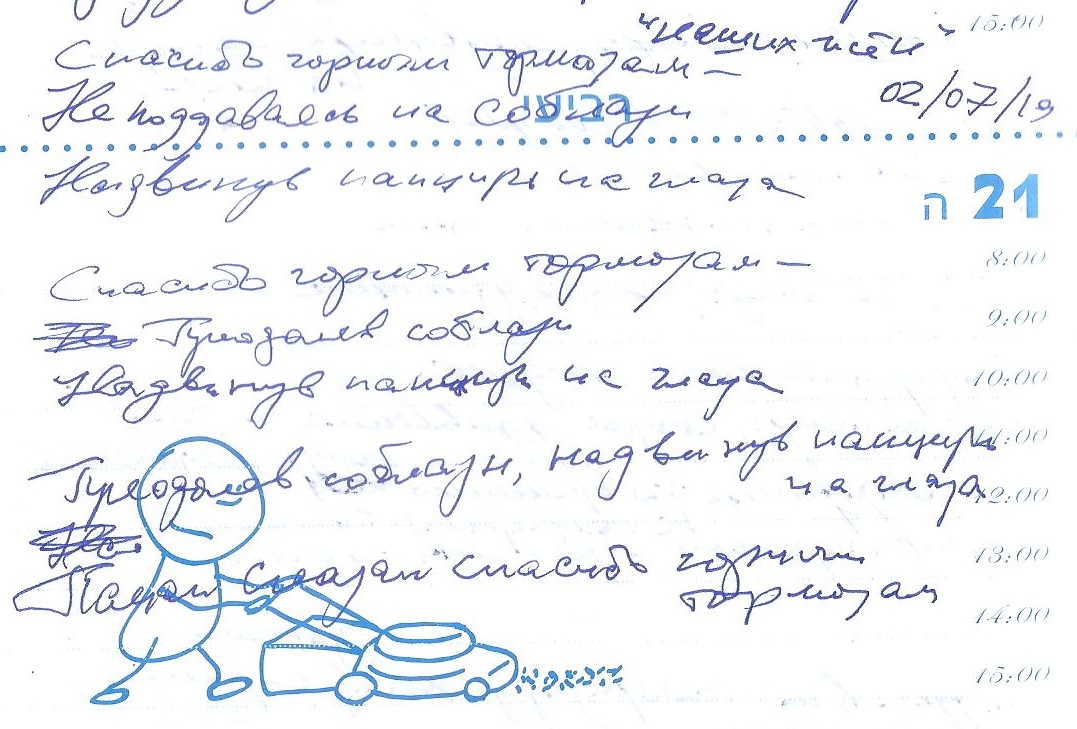 15:00
"наших
Спасибо горным тормозам —
02/07/19
Не поддаваясь на соблазн
רביעי
Надвинув панцирь на глаза
ה 21
8:00
Спасибо горным тормозам —
9:00
Преодолев соблазн
10:00
Надвинув панцирь на глаза
11:00
Преодолев соблазн, надвинув панцирь
на глаза
12:00
13:00
сказал спасибо горным
тормозам
14:00
15:00